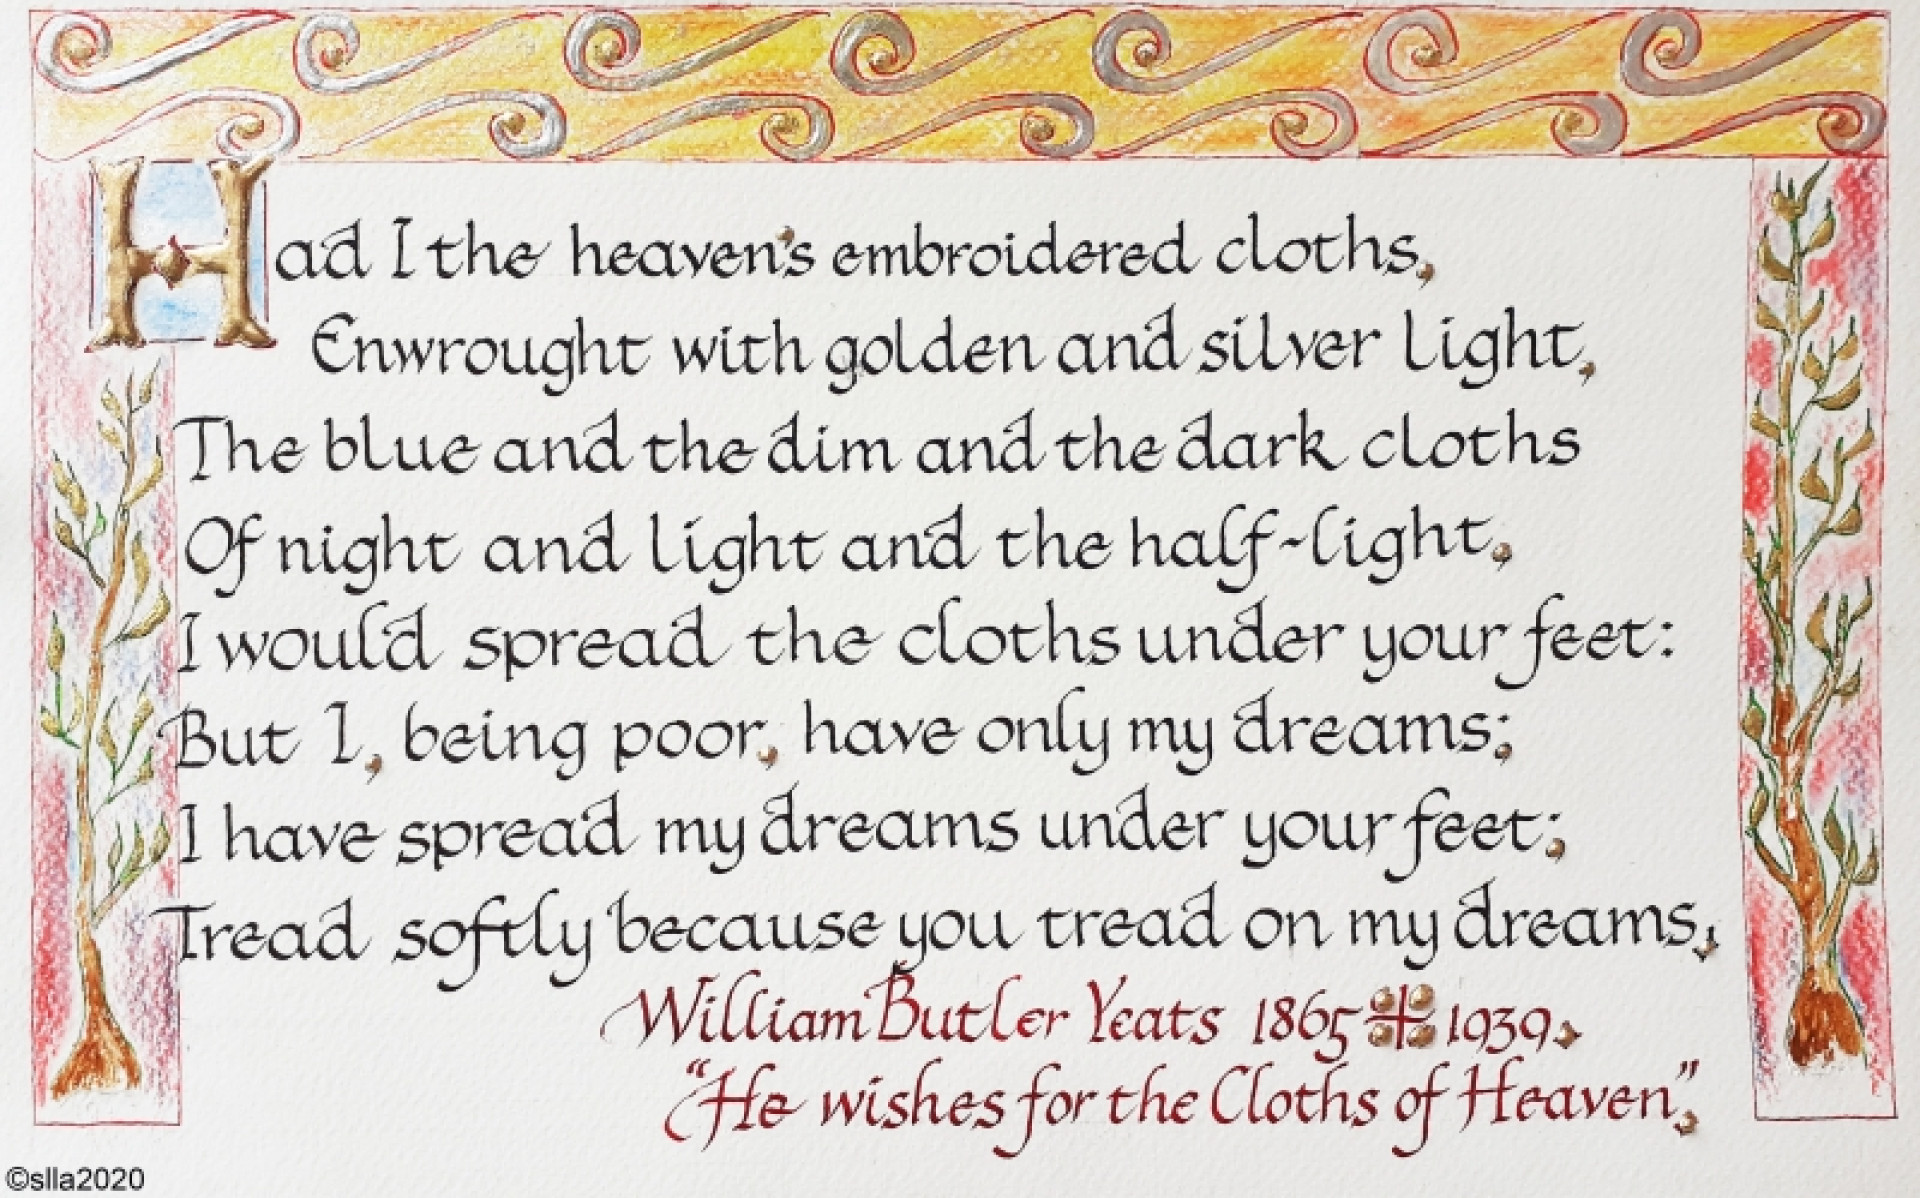 Had I the heaven's embroidered cloths,
Enwrought with golden and silver light,
The blue and the dim and the dark cloths
Of night and light and the half-light.
I would spread the cloths under your feet:
But I, being poor, have only my dreams;
I have spread my dreams under your feet;
Tread softly because you tread on my dreams,
William Butler Yeats 1865 + 1939.
"He wishes for the Cloths of Heaven".
©slla2020